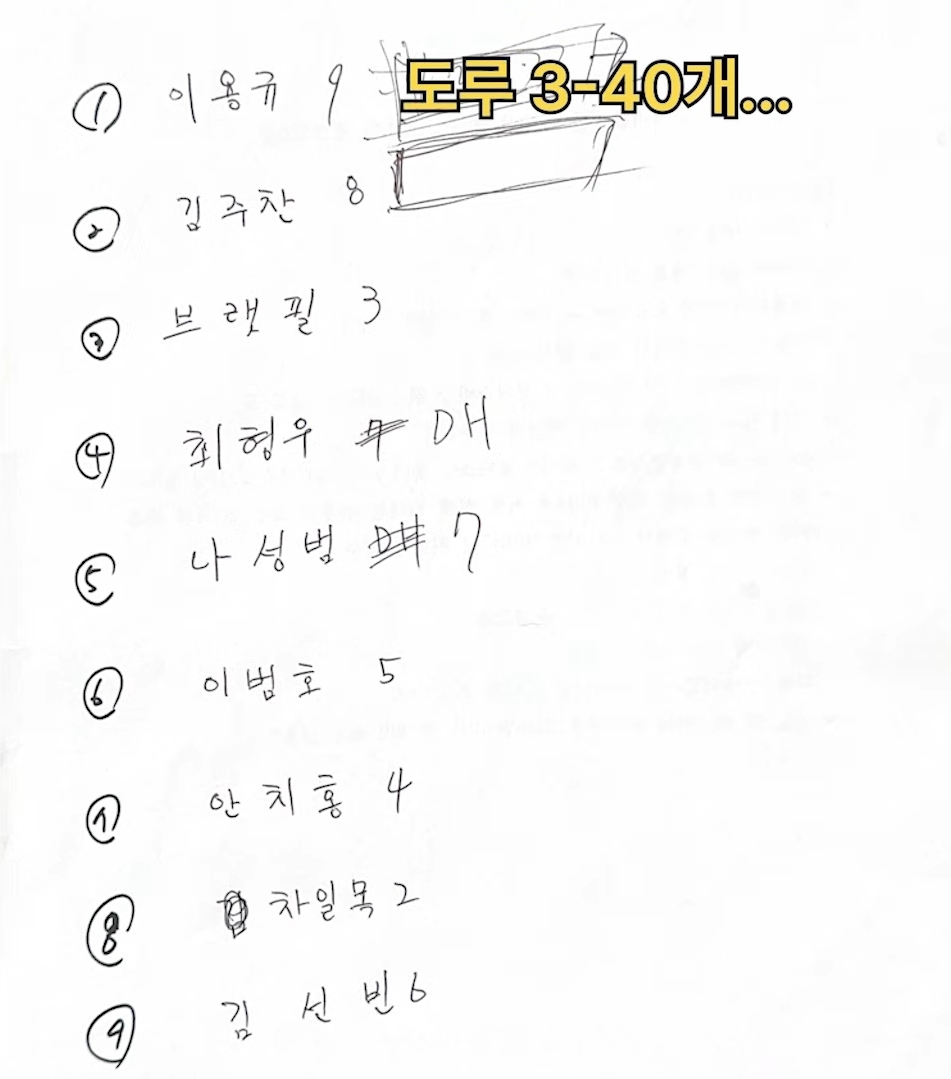 ① 이용규 9 도루 3-40개...
② 김주찬 8
③ 브랫필 3
④ 최형우 7 DH
⑤ 나성범 DH 7
⑥ 이범호 5
⑦ 안치홍 4
⑧ 차일목 2
⑨ 김선빈 6